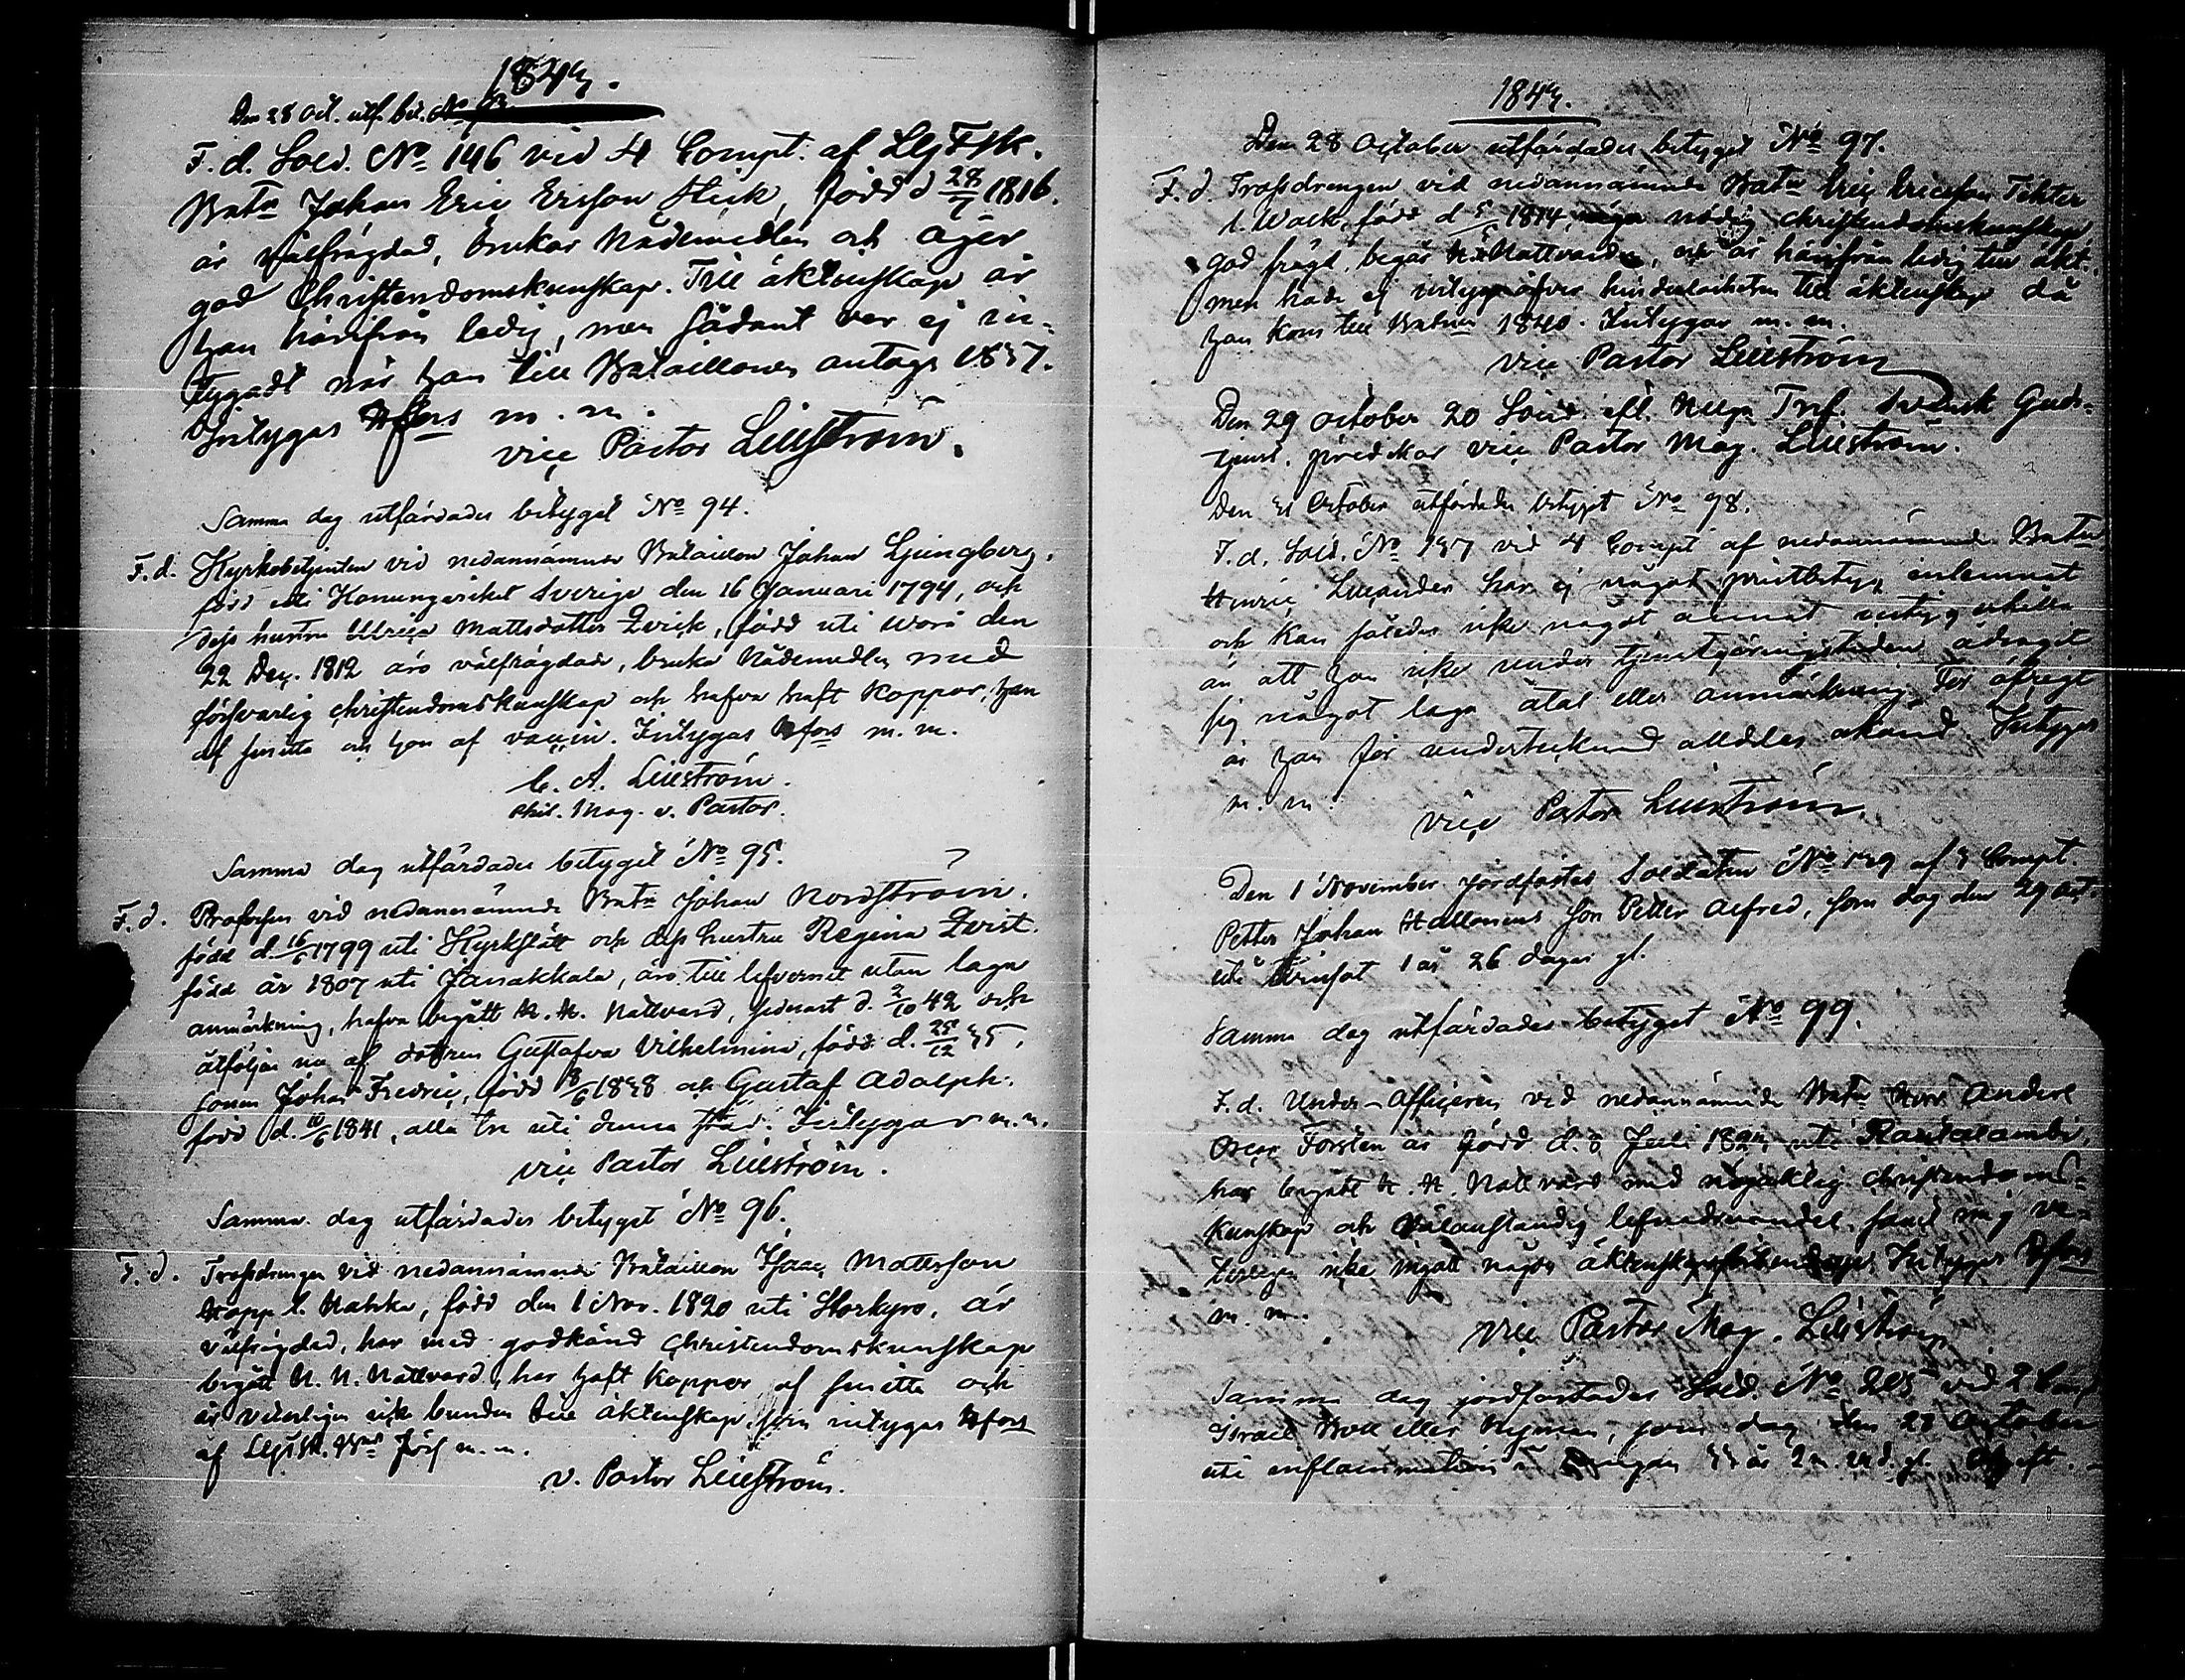 1843.
Den 28 Oct. utf. bet. No 93
F. d. Sold. No 146 vid 4 Compt. af LGFSk.
Batn Johan Eric Ersson Stick, född d 28/7 1816.
är välfrägdad, brukar Nådemedlen och äger
god Christendomskunskap. Till äktenskap är
han härifrån ledig, men sådant var ej in-
tygadt när han till Bataillonen antogs 1837.
Intygas Hfors m. m.
vice Pastor Lilleström.
Samma dag utfärdades betyget No 94.
F. d. Kyrkobetjenten vid nedannämnde Bataillon Johan Ljungberg,
född uti Konungariket Sverige den 16 Januari 1794, och
dess hustru Ulrica Mattsdotter Qvick, född uti Wörå den
22 Dec. 1812 äro välfrägdade, bruka Nådemedlen med
försvarlig christendomskunskap och hafva haft koppor, han
af sig sjelfva och hon af vaccin. Intygas Hfors m. m.
C. A. Lilleström.
Phil. Mag. v. Pastor.
Samma dag utfärdades betyget No 95.
F. d. Profossen vid nedannämnde Batn Johan Nordström.
född d. 16/6 1799 uti Kyrkslätt och dess hustru Regina Qvist.
född år 1807 uti Janakkala, äro till lefvernet utan laga
anmärkning, hafva begått H. H. Nattvard, sednast d. 2/10 42 och
åtföljas nu af dottren Gustafva Vilhelmina, född d. 25/12 35,
sonen Johan Fredric, född 8/6 1838 och Gustaf Adolph.
född d. 10/6 1841, alla tre uti denna stad. Intygar m. m.
vice Pastor Lilleström.
Samma dag utfärdades betyget No 96.
F. d. Trossdrengen vid nedannämnde Bataillon Isaac Mattsson
Kopp l. Natska, född den 1 Nov. 1820 uti Storkyro, är
välfrägdad, har med godkänd Christendomskunskap
begått H. H. Nattvard, har haft koppor och
är veterligen icke bunden till äktenskap, som intygas Hfors
af LGFSk. Bns Förs m. m.
v. Pastor Lilleström.
1843.
Den 28 October utfärdades betyget No 97.
F. d. Trossdrengen vid nedannämnde Batn Eric Ericsson Tikter
l. Wacker, född d 5/5 1814, äger nödig christendomskunskap,
god frägd, begår H. H. Nattvard, och är härifrån ledig till äkt.
men hade ej intyg öfver hinderlösheten till äktenskap då
han kom till Batn 1840. Intygar m. m.
vice Pastor Lilleström
Den 29 October 20 Sönd. eft. Helga Tref. Svensk Guds-
tjenst. predikar vice Pastor Mag. Lilleström.
Den 31 October utfärdades betyget No 98.
F. d. Sold. No 137 vid 4 Compt af nedannämnde Batn
Henric Lucander har ej något prestbetyg inlemnat
och kan således icke något annat intyg erhålla
än att han icke under tjenstgöringstiden ådragit
sig något laga åtal eller anmärkning. För öfrigt
är han för undertecknad alldeles okänd. Intygas
m. m.
vice Pastor Lilleström.
Den 1 November jordfästes Soldaten No 139 af 3 Compt.
Petter Johan Hallonens son Petter Alfred, som dog den 29 Oct.
uti 1 år 26 dagar gl.
Samma dag utfärdades betyget No 99.
F. d. Under-Officeren vid nedannämnde Batn Herr Anders
Oscar Forstén är född d. 8 Juli 1823 uti Rautalambi,
har begått H. H. Nattvard med nöjaktig christendoms-
kunskap och välanständig lefnadsvandel, samt mig ve-
terligen icke ingått några äktenskapsförbindelser. Intygas Hfors
m. m.
vice Pastor Mag. Lilleström
Samma dag jordfästades Sold. No 205 vid 2 Comp
Israel Boll eller Nyman, som dog den 28 October
uti inflammation i 33 år 2 m. gl. Gift.